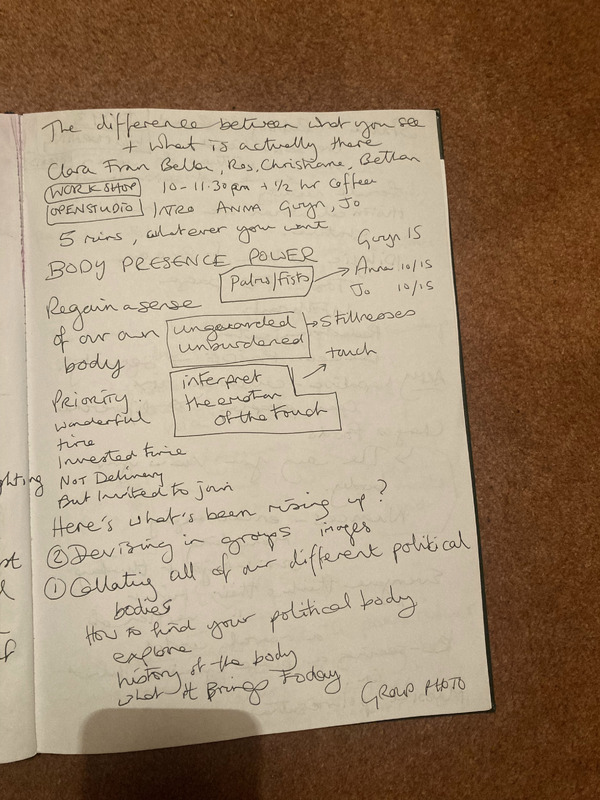 The difference between what you see
+ what is actually there
Clara Fran Bella, Ros, Christiane, Bethan
WORKSHOP 10 - 11.30pm + 1/2 hr Coffee
OPENSTUDIO INTRO ANNA Gwyn, Jo
5 mins, whatever you want
Gwyn 15
BODY PRESENCE POWER
Palms/Fists
Anna 10/15
Jo 10/15
Regain a sense
of our own
body
unguarded
unburdened
stillnesses
touch
interpret
the emotion
of the touch
PRIORITY.
wonderful
time
Invested time
Not Delivery
But Invited to join
Here's what's been rising up?
② Devising in groups images
① Collating all of our different political
bodies
How to find your political body
explore
history of the body
what it Brings Today
GROUP PHOTO
ghting